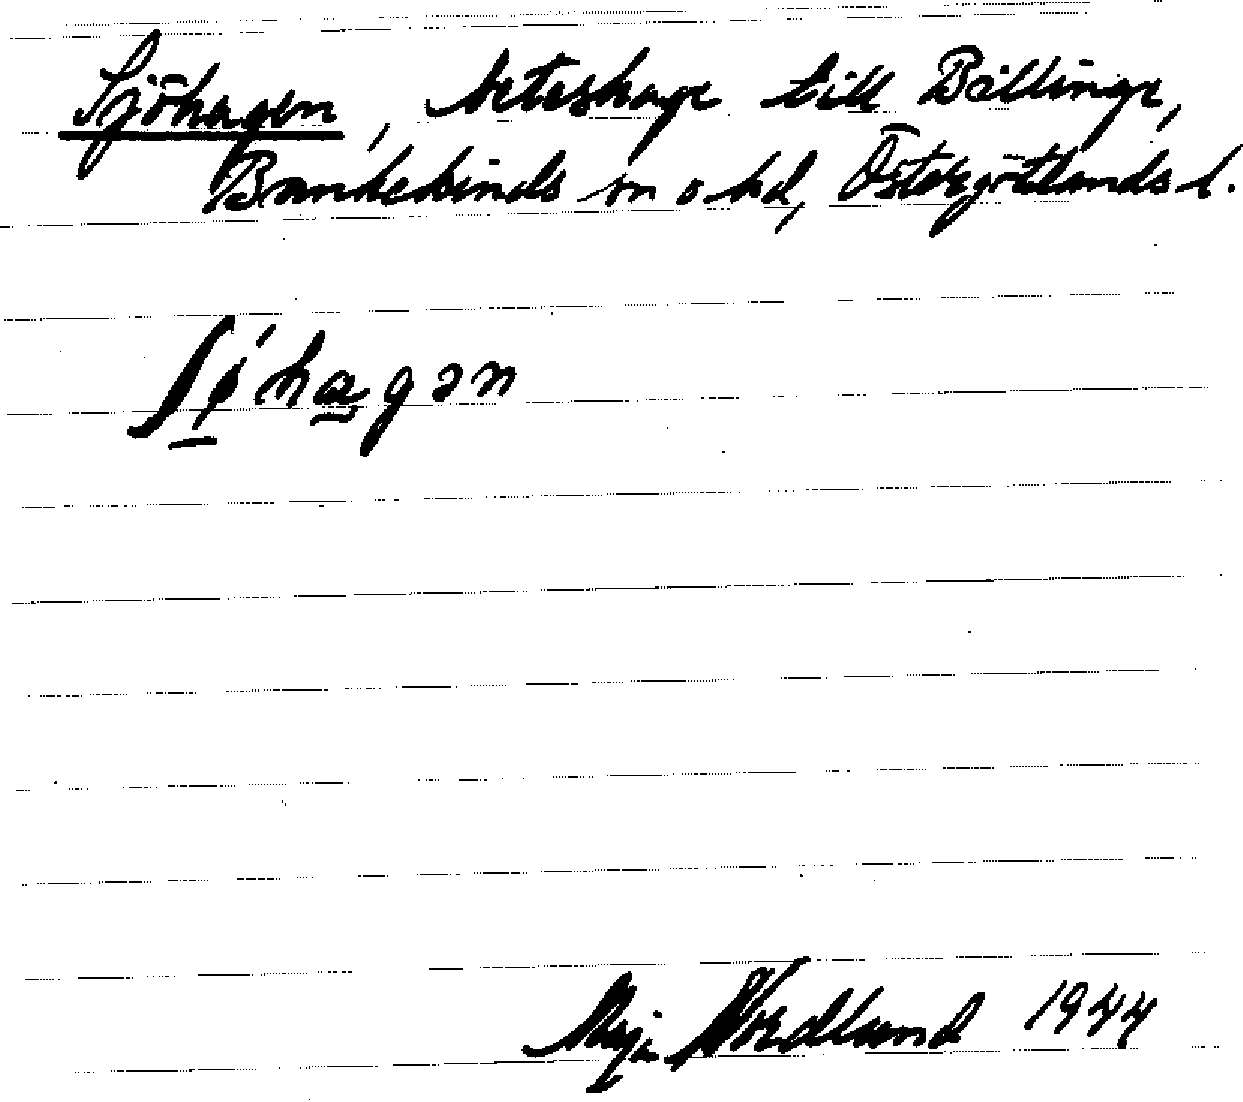 Sjöhagen, beteshage till Bällinge,
Bankekinds sn o hd, Östergötlands l.
ʃø´hagən
Maja Nordlund 1944